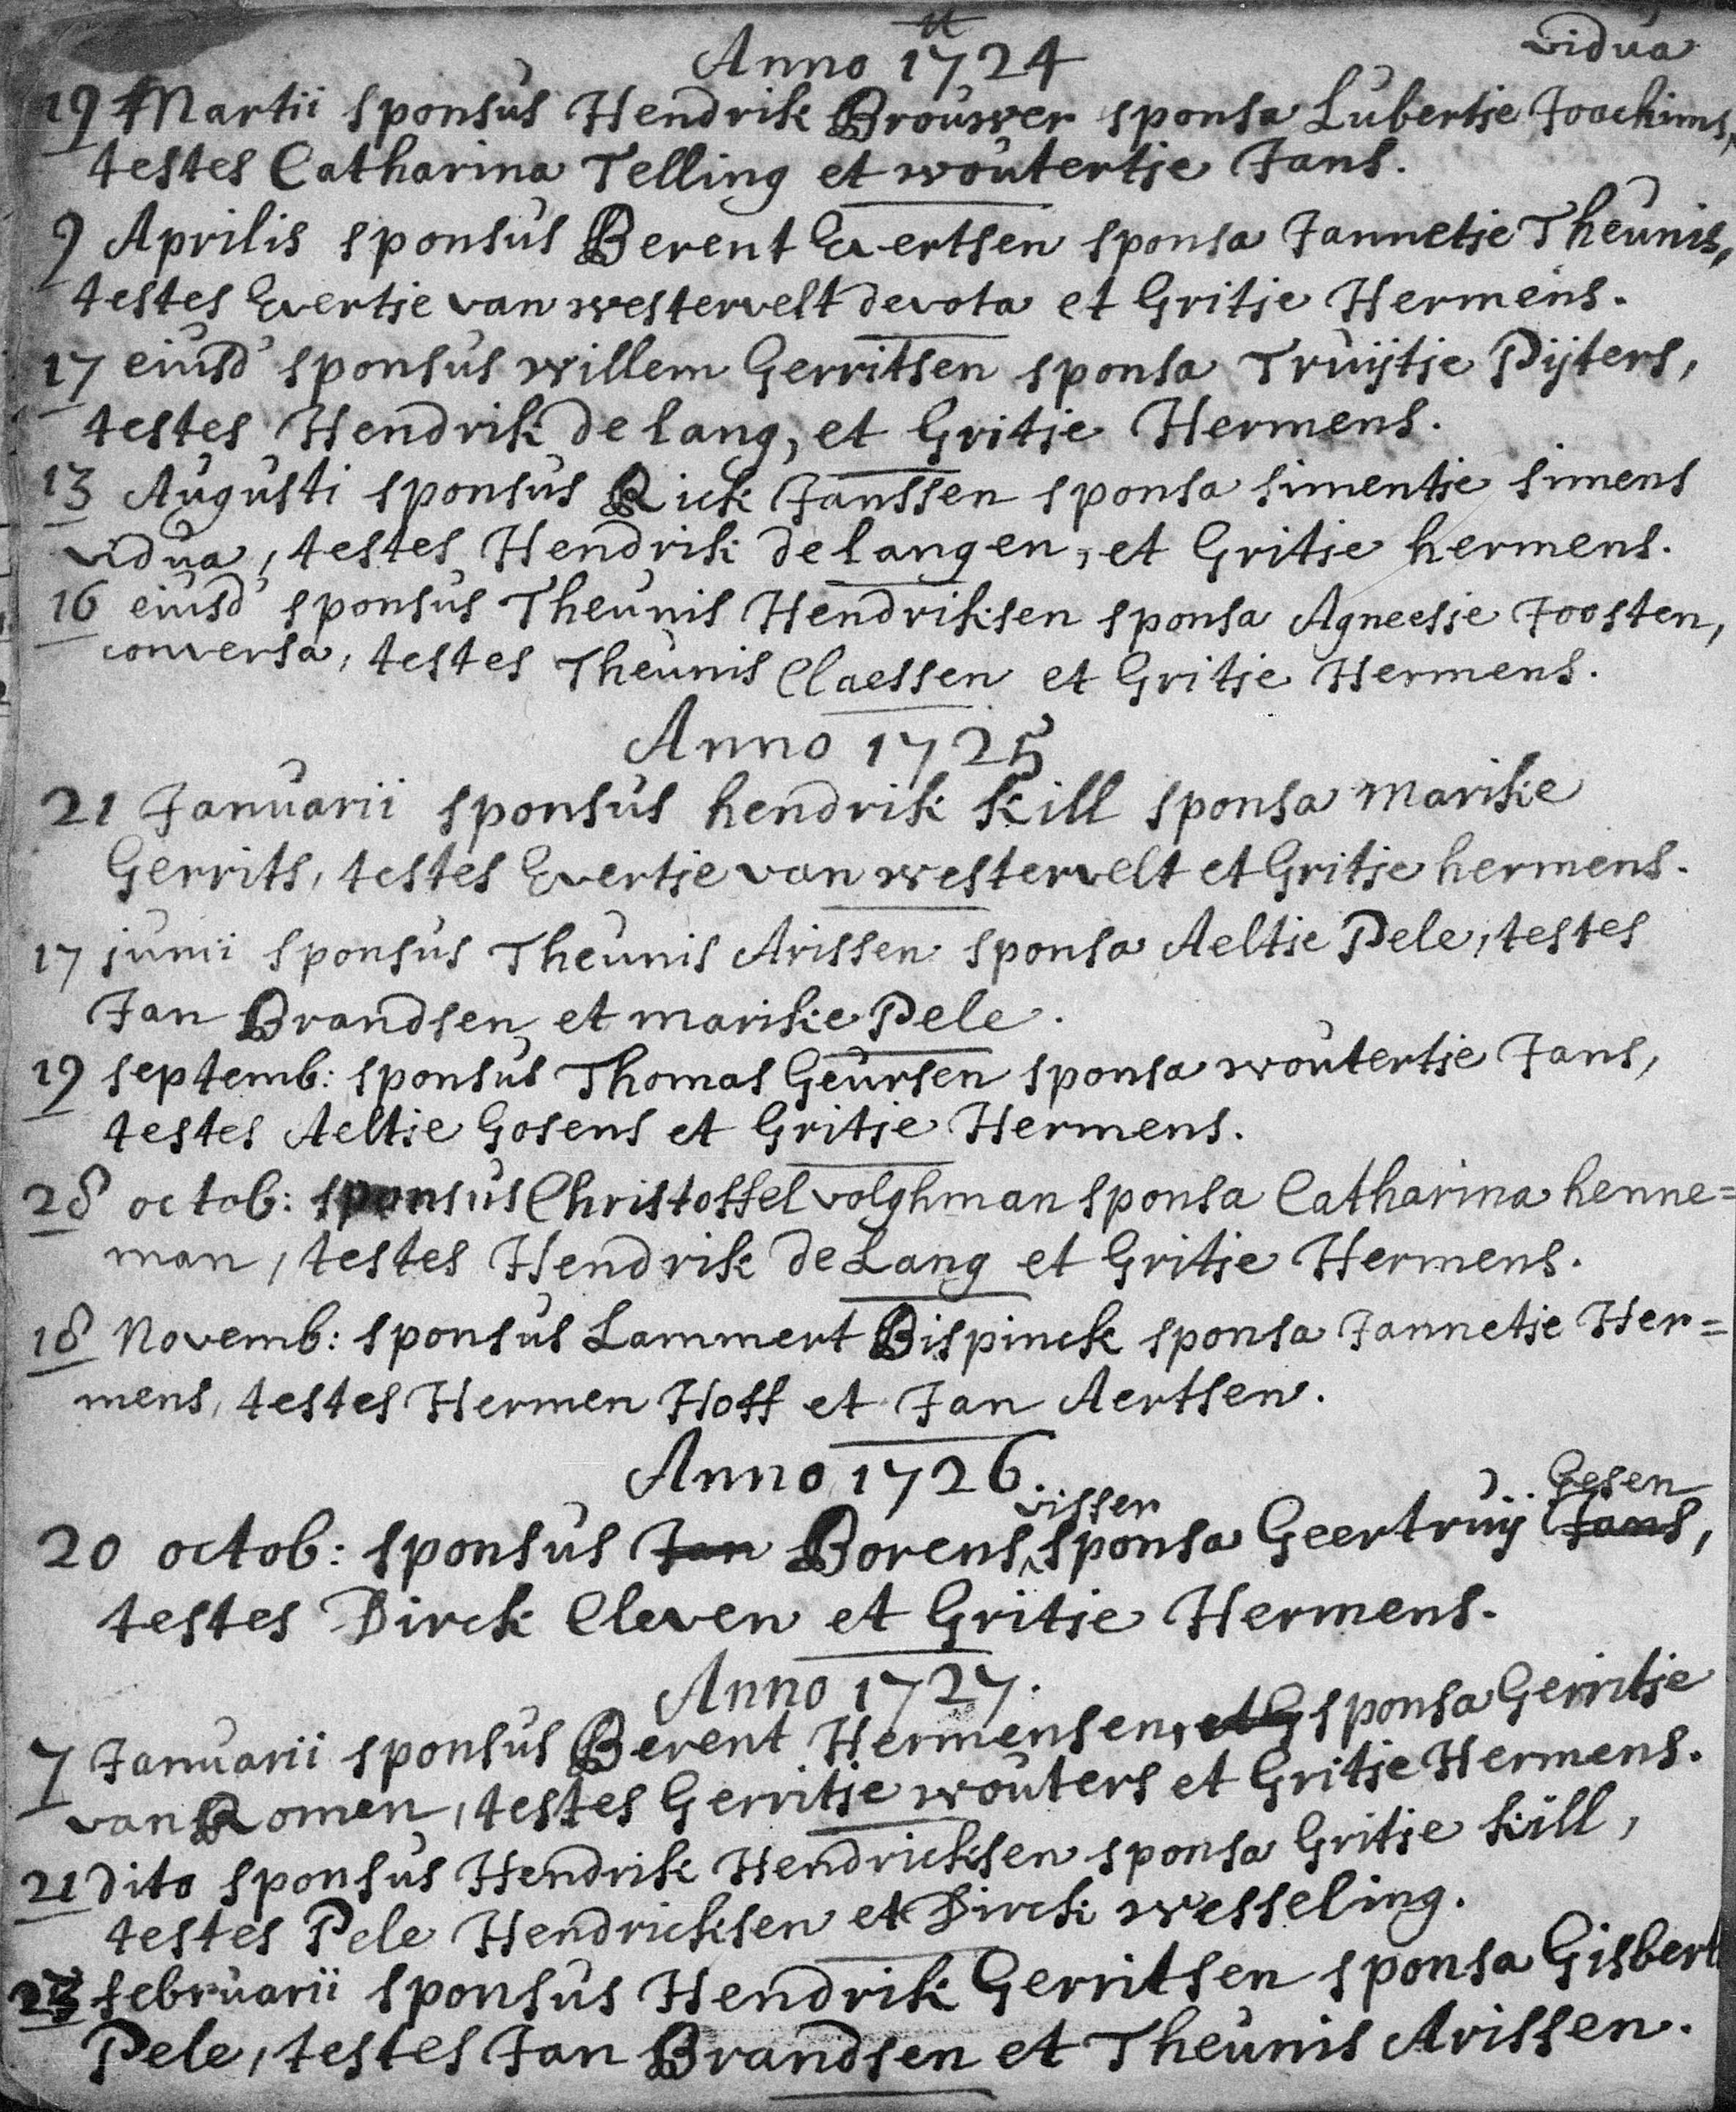 Anno 1724
vidua
19 Martii sponsus Hendrik Brouwer sponsa Lubertje Joachims,
testes Catharina Telling et woutertje Jans.
9 Aprilis sponsus Berent Evertsen sponsa Jannetje Theunis,
testes Evertje van westervelt devota et Gritje Hermens.
17 eiusd sponsus willem Gerritsen sponsa Truijtje Pijters,
testes Hendrik de lang, et Gritje Hermens.
13 Augusti sponsus Rick Janssen sponsa simentje simens
vidua, testes Hendrik de langen, et Gritje hermens.
16 eiusd sponsus Theunis Hendriksen sponsa Agneesje Joosten,
conversa, testes Theunis Claessen et Gritje Hermens.
Anno 1725
21 Januarii sponsus hendrik kill sponsa Marike
Gerrits, testes Evertje van westervelt et Gritje hermens.
17 junii sponsus Theunis Arissen sponsa Aeltje Pele, testes
Jan Brandsen et marike Pele.
19 septemb: sponsus Thomas Geursen sponsa woutertje Jans,
testes Aeltje Gosens et Gritje Hermens.
28 octob: sponsus Christoffel volghman sponsa Catharina henne=
man, testes Hendrik de Lang et Gritje Hermens.
18 Novemb: sponsus Lammert Bispinck sponsa Jannetje Her=
mens, testes Hermen Hoff et Jan Aertsen.
Anno 1726.
visser Gesen
20 octob: sponsus Jan Borens, sponsa Geertruij Jans,
testes Dirck Cleven et Gritje Hermens.
Anno 1727.
7 Januarii sponsus Berent Hermensen, et G sponsa Gerritje
van Romen, testes Gerritje wouters et Gritje Hermens.
21 Dito sponsus Hendrik Hendricksen sponsa Gritje kill,
testes Pele Hendricksen et Dirck wesseling.
februarii sponsus Hendrik Gerritsen sponsa Gisbert
Pele, testes Jan Brandsen et Theunis Arissen.